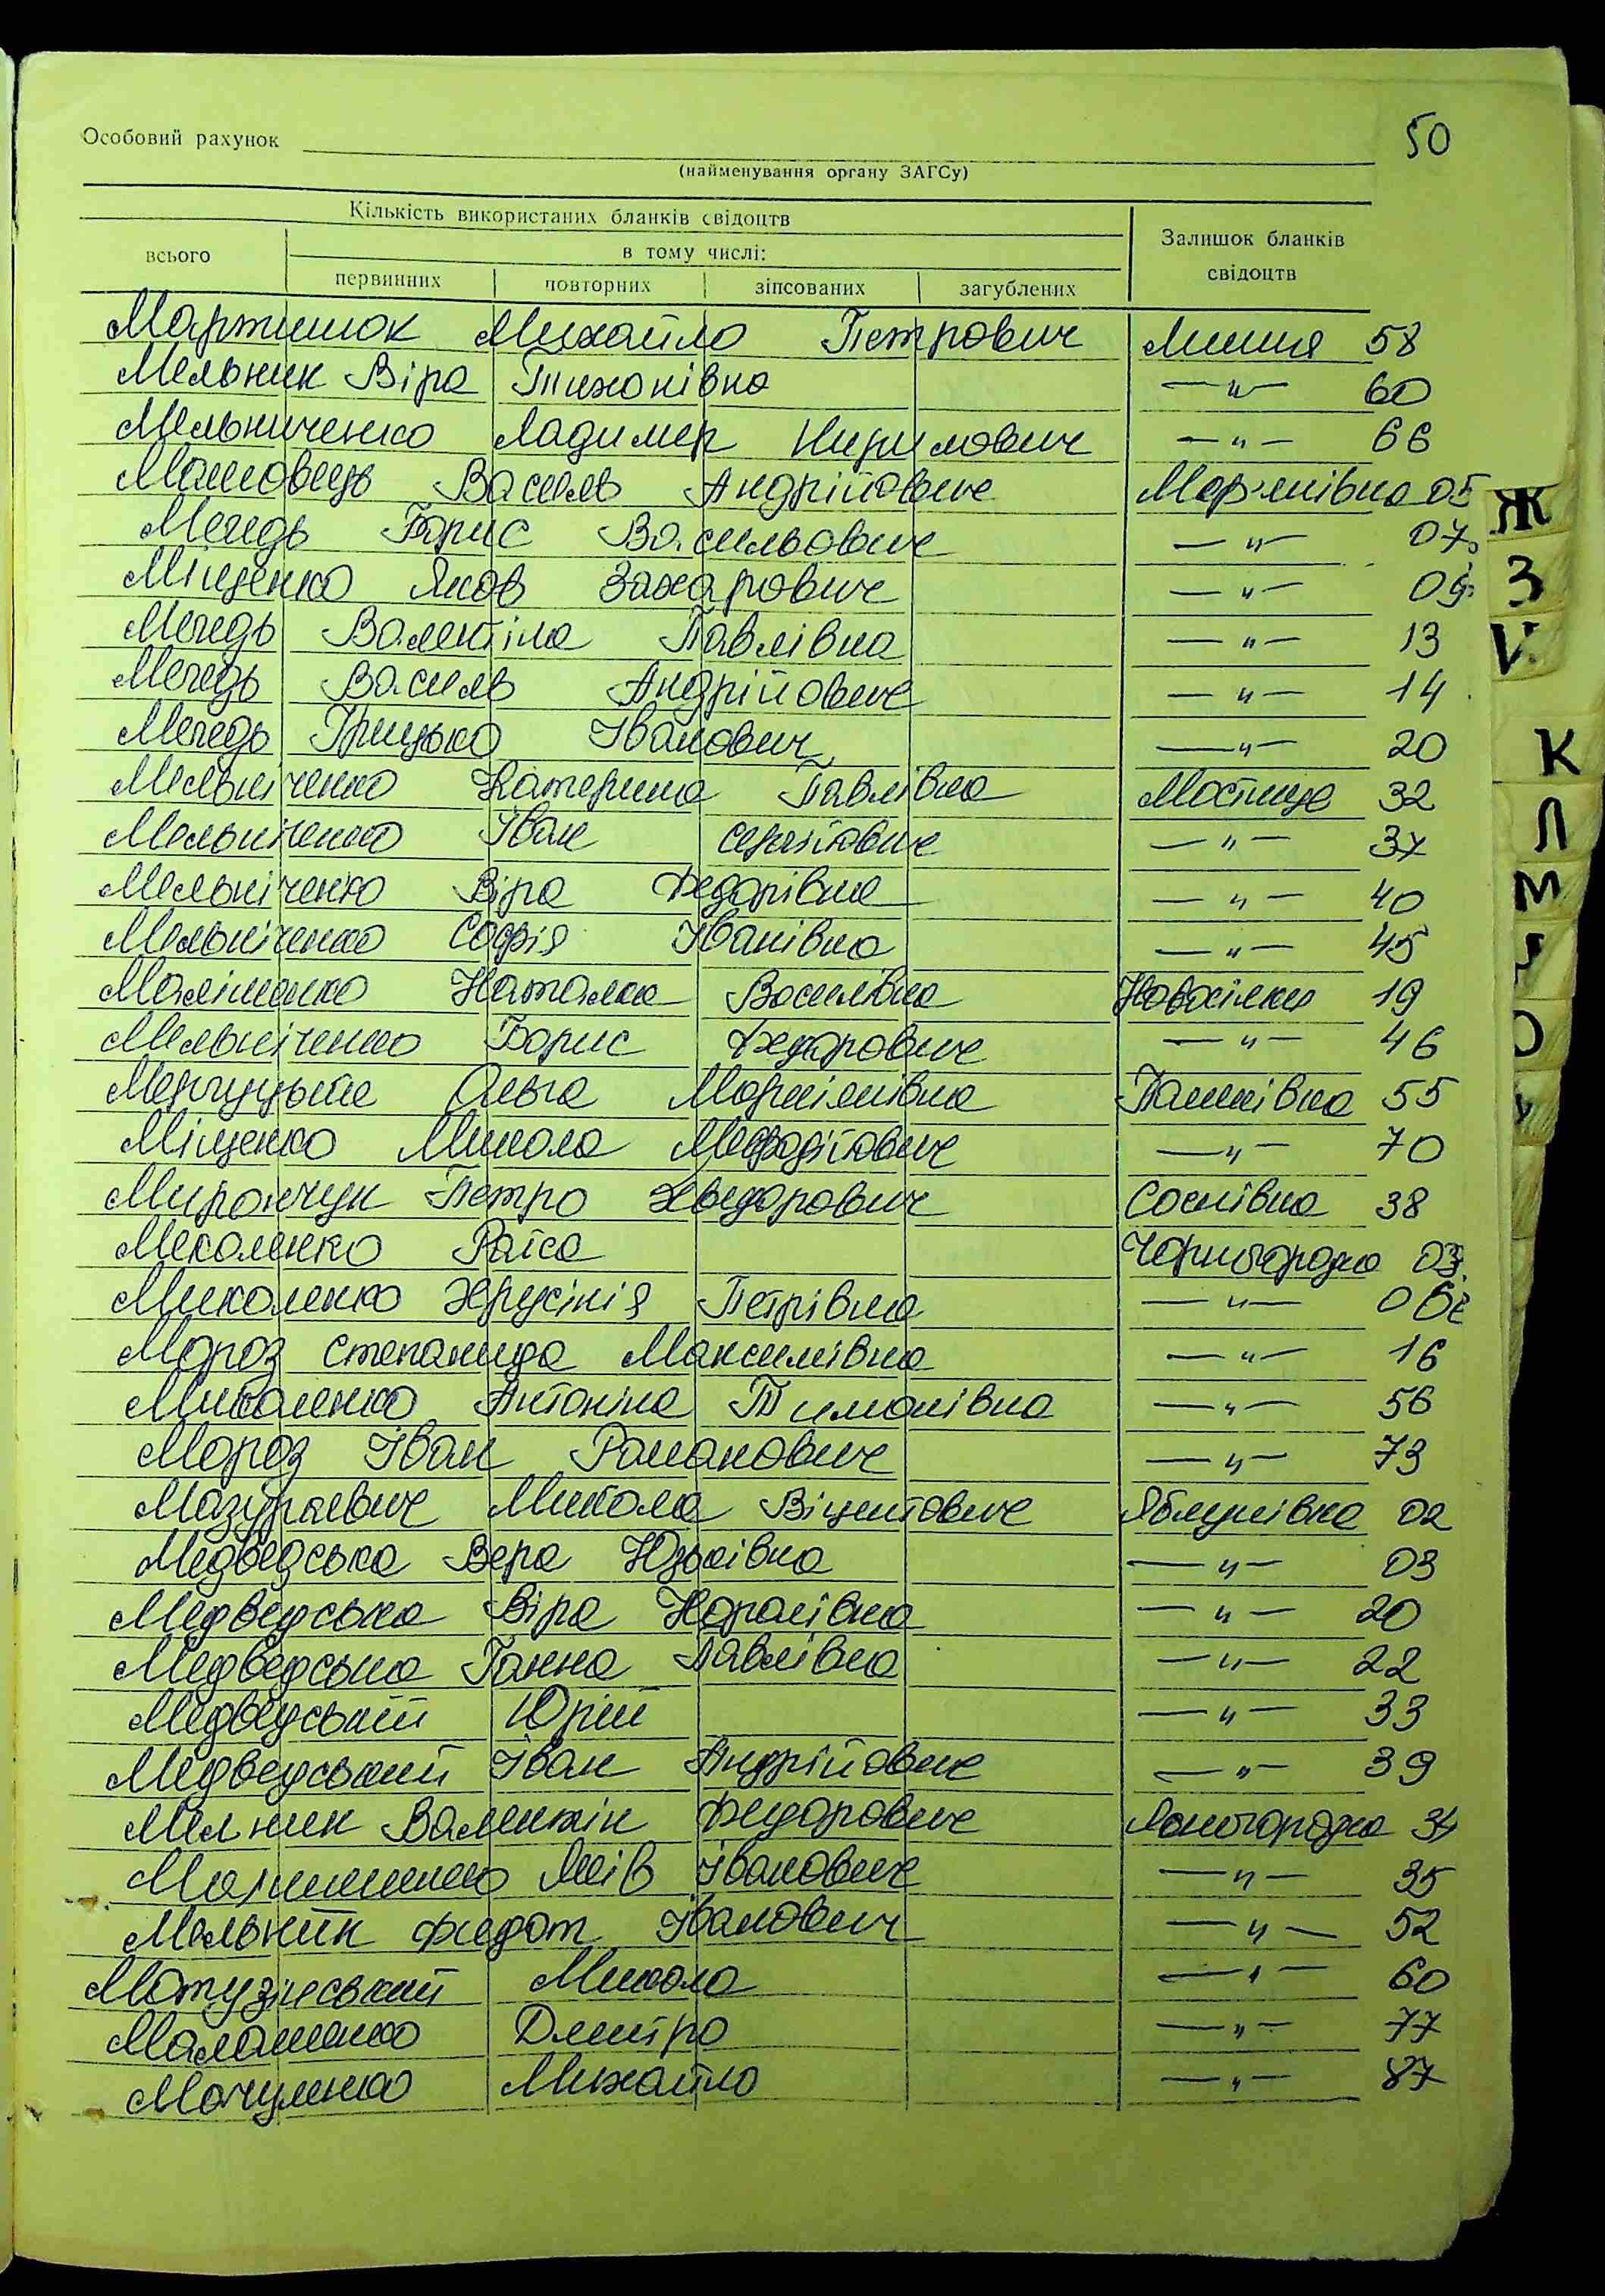 50
Особовий рахунок
(найменування органу ЗАГСу)
Кількість використаних бланків свідоцтв
Залишок бланків свідоцтв
всього
в тому числі:
первинних повторних зіпсованих загублених
Мартинюк Михайло Петрович Личня 58
Мельник Віра Тихонівна —"— 60
Мельниченко Ладимер Кирилович —"— 66
Василь Андрійович Мар'янівка 05
Мегедь Борис Васильович —"— 07
Міщенко Яков Захарович —"— 09
Мегедь Валентіна Павлівна —"— 13
Мегедь Василь Андрійович —"— 14
Мегедь Грицько Іванович —"— 20
Мельніченко Катерина Павлівна Мостище 32
Мельніченко Іван Сергійович —"— 37
Мельніченко Віра Федорівна —"— 40
Мельніченко Софія Іванівна —"— 45
Наталка Василівна Новосілки 19
Мельніченко Борис Федорович —"— 46
Ольга Пашківка 55
Міщенко Микола Мефодійович —"— 70
Мирончук Петро Хведорович Соснівка 38
Миколенко Раїса Чорногородка 03
Миколенко Хрусінія Петрівна —"—
Мороз Степанида Максимівна —"— 16
Миколенко Антоніна Тимонівна —"— 56
Мороз Іван Романович —"— 73
Мазуркевич Микола Віцентович Яблунівка 02
Медведська Вера Юзьківна —"— 03
Медведська Віра Каролівна —"— 20
Медведська Ганна Павлівна —"— 22
Медведський Юрій —"— 33
Медведський Іван Андрійович —"— 39
Мельник Валентін Федорович Ясногородка 34
Яків Іванович —"— 35
Мельник Федот Іванович —"— 52
Микола —"— 60
Малашенко Дмитро —"— 77
Михайло —"— 87
Ж
З
К
Л
М
О